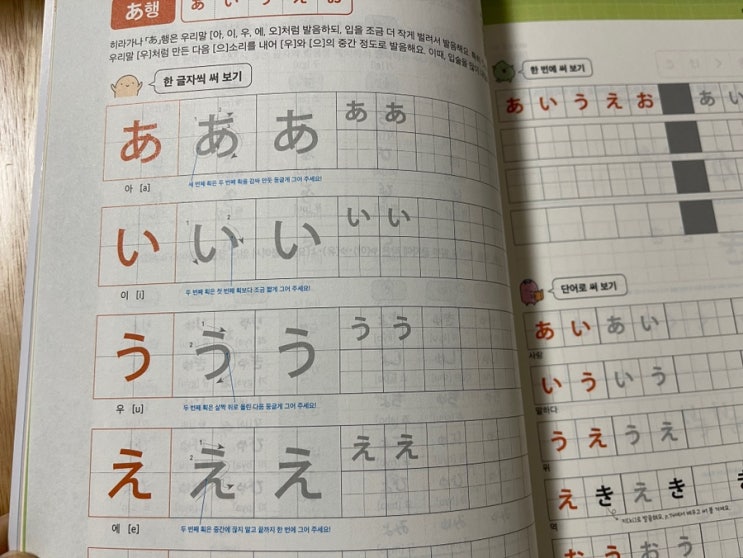 あ행
あ い う え お
히라가나 「あ」행은 우리말 [아, 이, 우, 에, 오]처럼 발음하되, 입을 조금 더 작게 벌려서 발음해요.
우리말 [우]처럼 만든 다음 [으]소리를 내어 [우]와 [으]의 중간 정도로 발음해요. 이때, 입술을
한 글자씩 써 보기
あ あ あ あ あ
세 번째 획은 두 번째 획을 감싸 안듯 둥글게 그어 주세요!
아 [a]
い い い い い
두 번째 획은 첫 번째 획보다 조금 짧게 그어 주세요!
이 [i]
う う う う う
두 번째 획은 살짝 위로 올린 다음 둥글게 그어 주세요!
우 [u]
え え え え え
두 번째 획은 중간에 끊지 말고 끝까지 한 번에 그어 주세요!
에 [e]
한 번에 써 보기
あ い う え お あ い
단어로 써 보기
あ い あ い
사랑
い う い う
말하다
う え う え
위
え き え き
역
お う お う